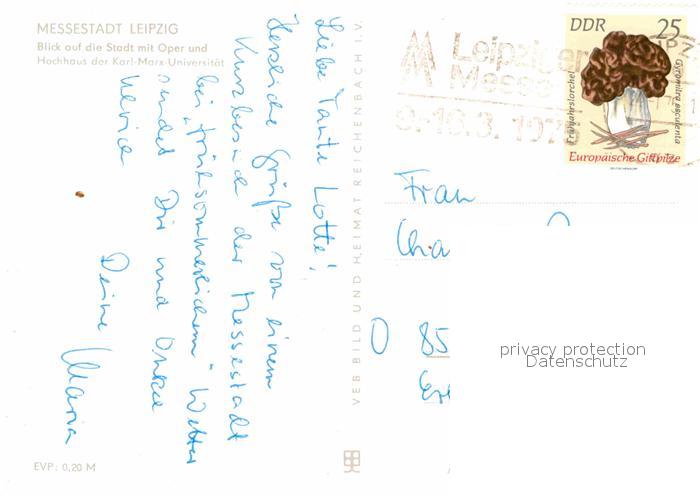 MESSESTADT LEIPZIG
Blick auf die Stadt mit Oper und
Hochhaus der Karl-Marx-Universität
Liebe Tante Lotte!
Herzliche Grüße von einem
Kurzbesuch der Messestadt
bei „frühsommerlichem" Wetter
sendet Dir und Onkel
Ulrich
Deine Maria
EVP: 0,20 M
VEB BILD UND HEIMAT REICHENBACH I.V.
Leipziger
Messe
9.-16.3. 1975
DDR 25
Frühjahrslorchel
Gyromitra esculenta
Europäische Giftpilze
Frau
Cha
O 85
privacy protection
Datenschutz